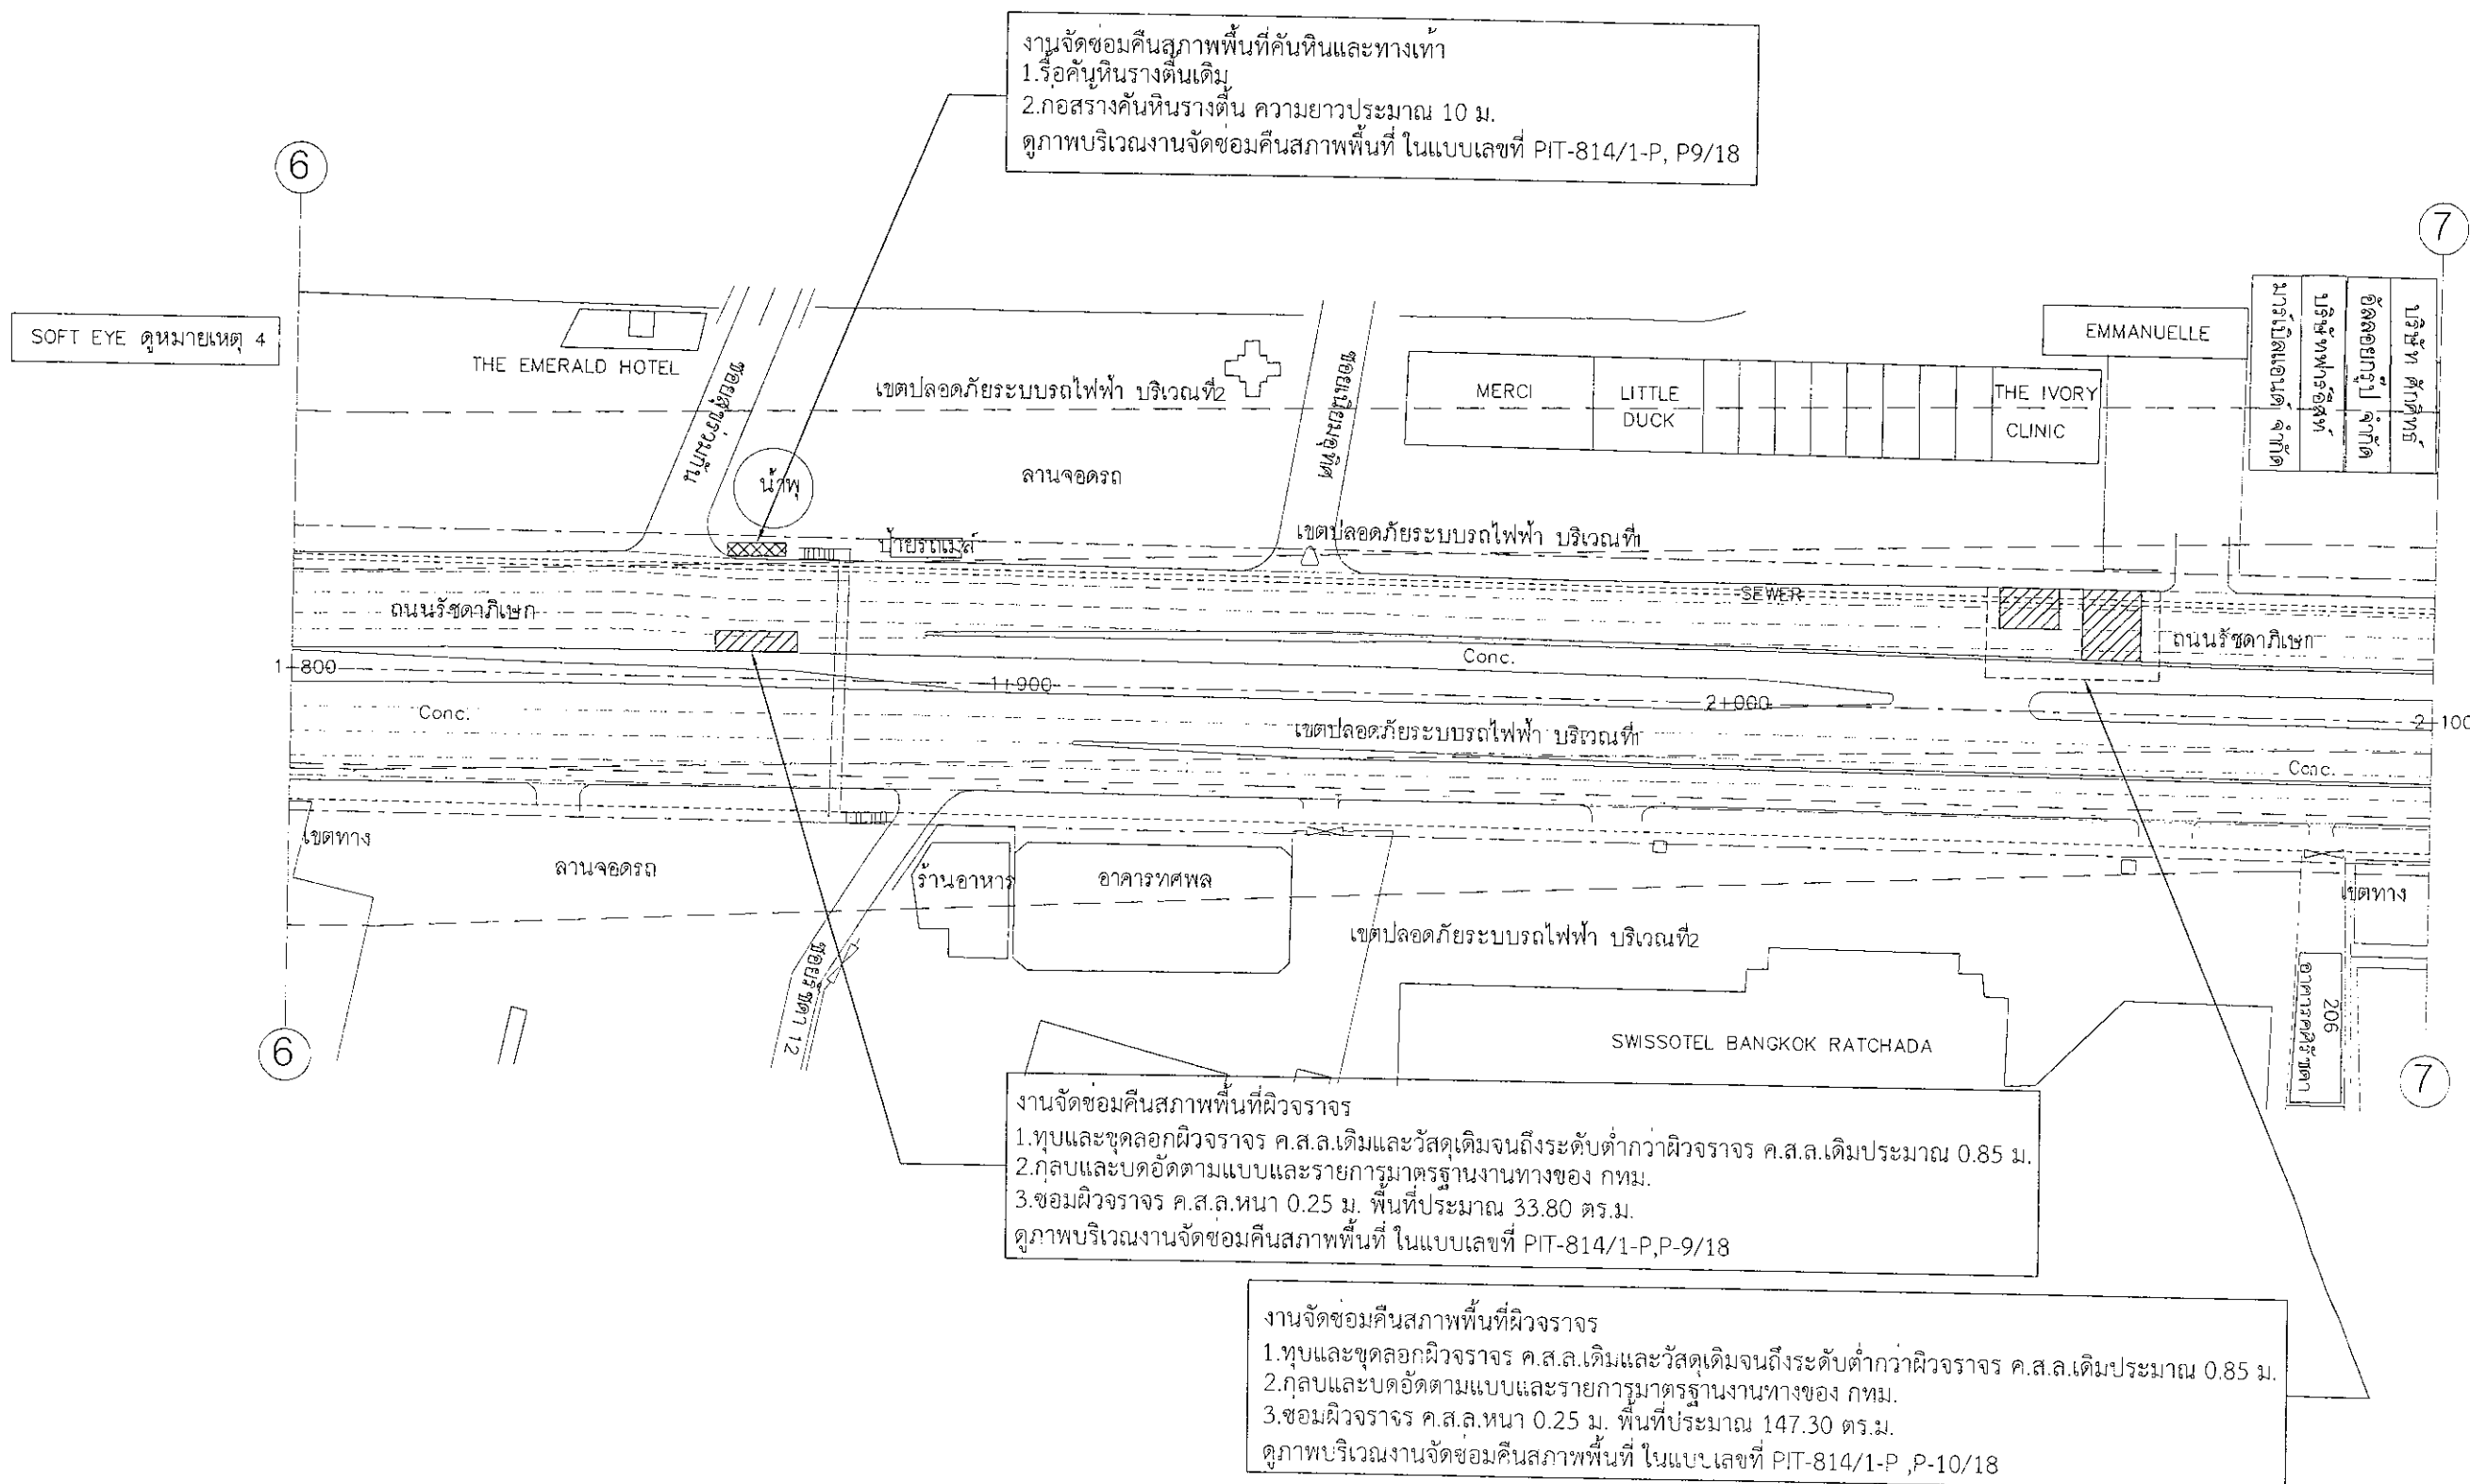 งานจัดซ่อมคืนสภาพพื้นที่คันหินและทางเท้า
1.รื้อคันหินรางตื้นเดิม
2.ก่อสร้างคันหินรางตื้น ความยาวประมาณ 10 ม.
ดูภาพบริเวณงานจัดซ่อมคืนสภาพพื้นที่ ในแบบเลขที่ PIT-814/1-P, P9/18
6
7
SOFT EYE ดูหมายเหตุ 4
THE EMERALD HOTEL
ซอยสุขร่วมกัน
เขตปลอดภัยระบบรถไฟฟ้า บริเวณที่2
น้ำพุ
ลานจอดรถ
ป้ายรถเมล์
MERCI
LITTLE
DUCK
THE IVORY
CLINIC
EMMANUELLE
มาร์เบิลแอนด์ จำกัด
บริษัทฟาร์อีสท์
อัลลอยกรุ๊ป จำกัด
บริษัท ศักดิ์ทธ์
เขตปลอดภัยระบบรถไฟฟ้า บริเวณที่1
SEWER
ถนนรัชดาภิเษก
ถนนรัชดาภิเษก
Conc.
1+800
1+900
2+000
2+100
Conc.
เขตปลอดภัยระบบรถไฟฟ้า บริเวณที่1
Conc.
เขตทาง
ลานจอดรถ
ร้านอาหาร
อาคารทศพล
เขตทาง
เขตปลอดภัยระบบรถไฟฟ้า บริเวณที่2
ซอยรัชดา 12
SWISSOTEL BANGKOK RATCHADA
206
6
7
งานจัดซ่อมคืนสภาพพื้นที่ผิวจราจร
1.ทุบและขุดลอกผิวจราจร ค.ส.ล.เดิมและวัสดุเดิมจนถึงระดับต่ำกว่าผิวจราจร ค.ส.ล.เดิมประมาณ 0.85 ม.
2.กลบและบดอัดตามแบบและรายการมาตรฐานงานทางของ กทม.
3.ซ่อมผิวจราจร ค.ส.ล.หนา 0.25 ม. พื้นที่ประมาณ 33.80 ตร.ม.
ดูภาพบริเวณงานจัดซ่อมคืนสภาพพื้นที่ ในแบบเลขที่ PIT-814/1-P,P-9/18
งานจัดซ่อมคืนสภาพพื้นที่ผิวจราจร
1.ทุบและขุดลอกผิวจราจร ค.ส.ล.เดิมและวัสดุเดิมจนถึงระดับต่ำกว่าผิวจราจร ค.ส.ล.เดิมประมาณ 0.85 ม.
2.กลบและบดอัดตามแบบและรายการมาตรฐานงานทางของ กทม.
3.ซ่อมผิวจราจร ค.ส.ล.หนา 0.25 ม. พื้นที่ประมาณ 147.30 ตร.ม.
ดูภาพบริเวณงานจัดซ่อมคืนสภาพพื้นที่ ในแบบเลขที่ PIT-814/1-P ,P-10/18